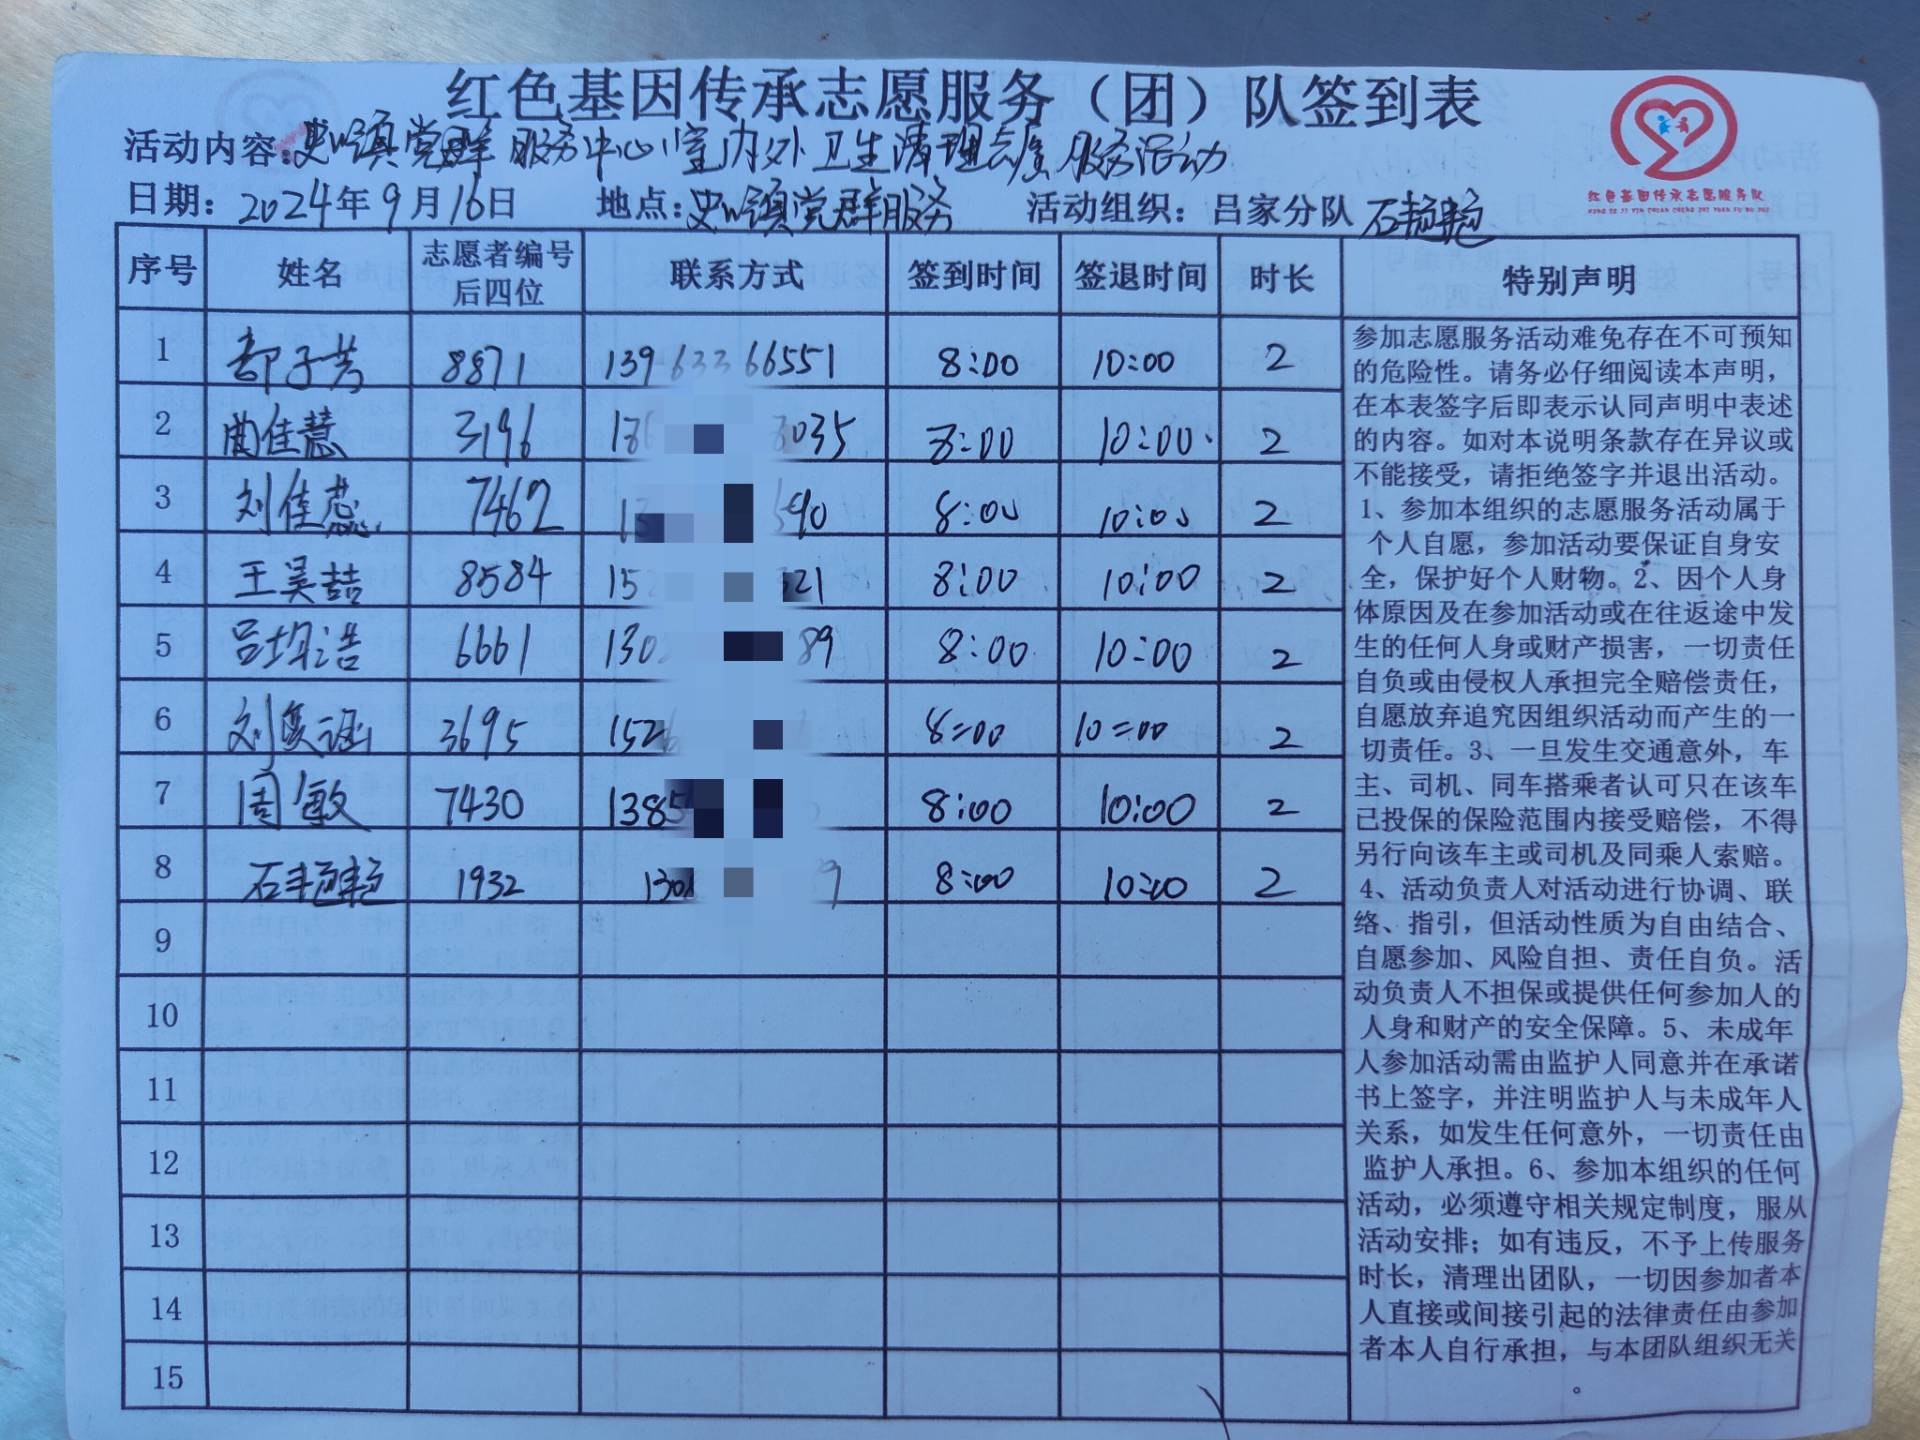 红色基因传承志愿服务（团）队签到表
红色基因传承志愿服务队
活动内容：史口镇党群服务中心室内外卫生清理志愿服务活动
日期：2024年9月16日 地点：史口镇党群服务 活动组织：吕家分队 石艳艳
序号 姓名 志愿者编号后四位 联系方式 签到时间 签退时间 时长 特别声明
1 子芳 8871 13963366551 8:00 10:00 2
2 曲佳慧 3196 186 8035 8:00 10:00 2
3 刘佳蕊 7462 13 590 8:00 10:00 2
4 王昊喆 8584 152 321 8:00 10:00 2
5 吕均浩 6661 130 89 8:00 10:00 2
6 刘奕涵 3695 152 8:00 10:00 2
7 周敏 7430 1385 8:00 10:00 2
8 石艳艳 1932 130 9 8:00 10:00 2
9
10
11
12
13
14
15
参加志愿服务活动难免存在不可预知
的危险性。请务必仔细阅读本声明，
在本表签字后即表示认同声明中表述
的内容。如对本说明条款存在异议或
不能接受，请拒绝签字并退出活动。
1、参加本组织的志愿服务活动属于
个人自愿，参加活动要保证自身安
全，保护好个人财物。2、因个人身
体原因及在参加活动或在往返途中发
生的任何人身或财产损害，一切责任
自负或由侵权人承担完全赔偿责任，
自愿放弃追究因组织活动而产生的一
切责任。3、一旦发生交通意外，车
主、司机、同车搭乘者认可只在该车
已投保的保险范围内接受赔偿，不得
另行向该车主或司机及同乘人索赔。
4、活动负责人对活动进行协调、联
络、指引，但活动性质为自由结合、
自愿参加、风险自担、责任自负。活
动负责人不担保或提供任何参加人的
人身和财产的安全保障。5、未成年
人参加活动需由监护人同意并在承诺
书上签字，并注明监护人与未成年人
关系，如发生任何意外，一切责任由
监护人承担。6、参加本组织的任何
活动，必须遵守相关规定制度，服从
活动安排；如有违反，不予上传服务
时长，清理出团队，一切因参加者本
人直接或间接引起的法律责任由参加
者本人自行承担，与本团队组织无关
。